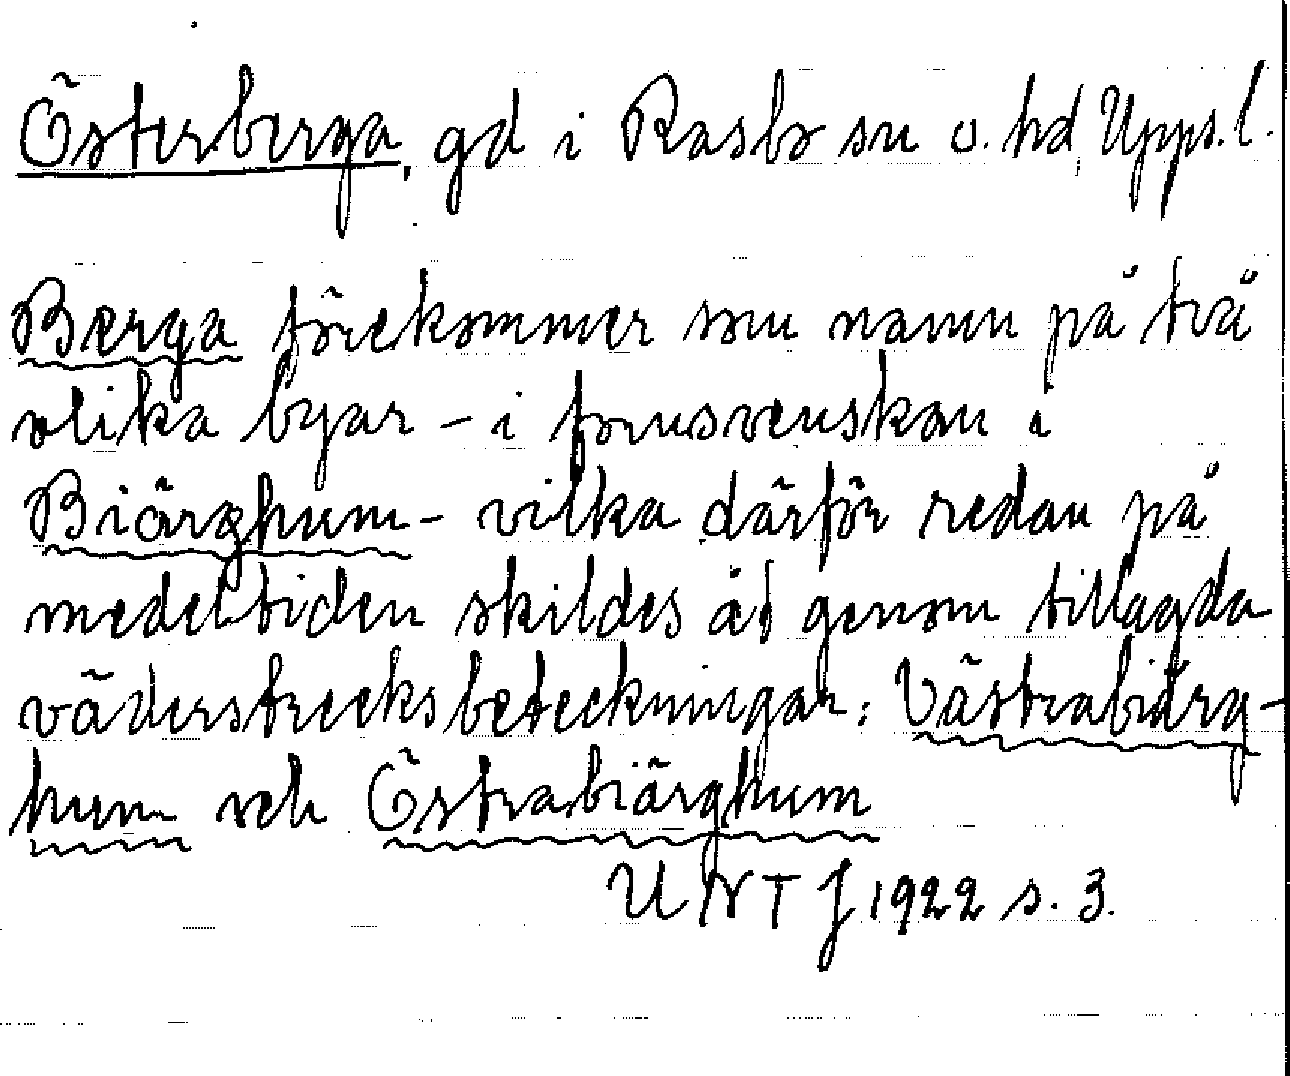 Österberga, gd i Rasbo sn o. hd, Upps. l.
Berga förekommer som namn på två
olika byar - i fornsvenskan i
Biärghum - vilka därför redan på
medeltiden skildes åt genom tillagda
väderstrecksbeteckningar: Västrabiärg-
hum och Östrabiärghum
UNT J 1922 s. 3.